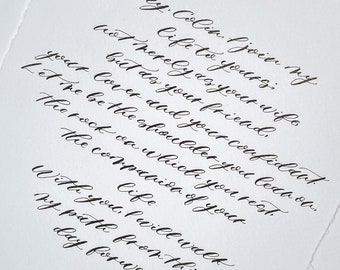 my, Colin, I join my
life to yours;
not merely as your wife
but as your friend,
your lover and your confidant.
Let me be the shoulder you lean on,
the rock on which you rest,
the companion of your
life.
With you, I will walk
my path from this
day forw